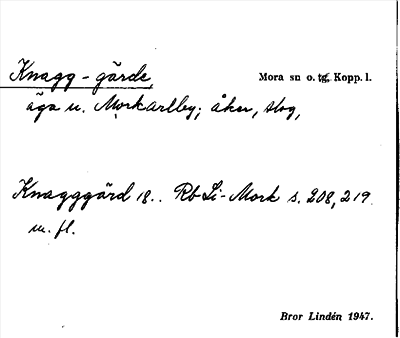 Knagg-gärde Mora sn o. tg. Kopp. l.
äga u. Morkarlby; åker, skog,
Knagggärd 18.. Rb Li-Mork s. 208, 219
m. fl.
Bror Lindén 1947.